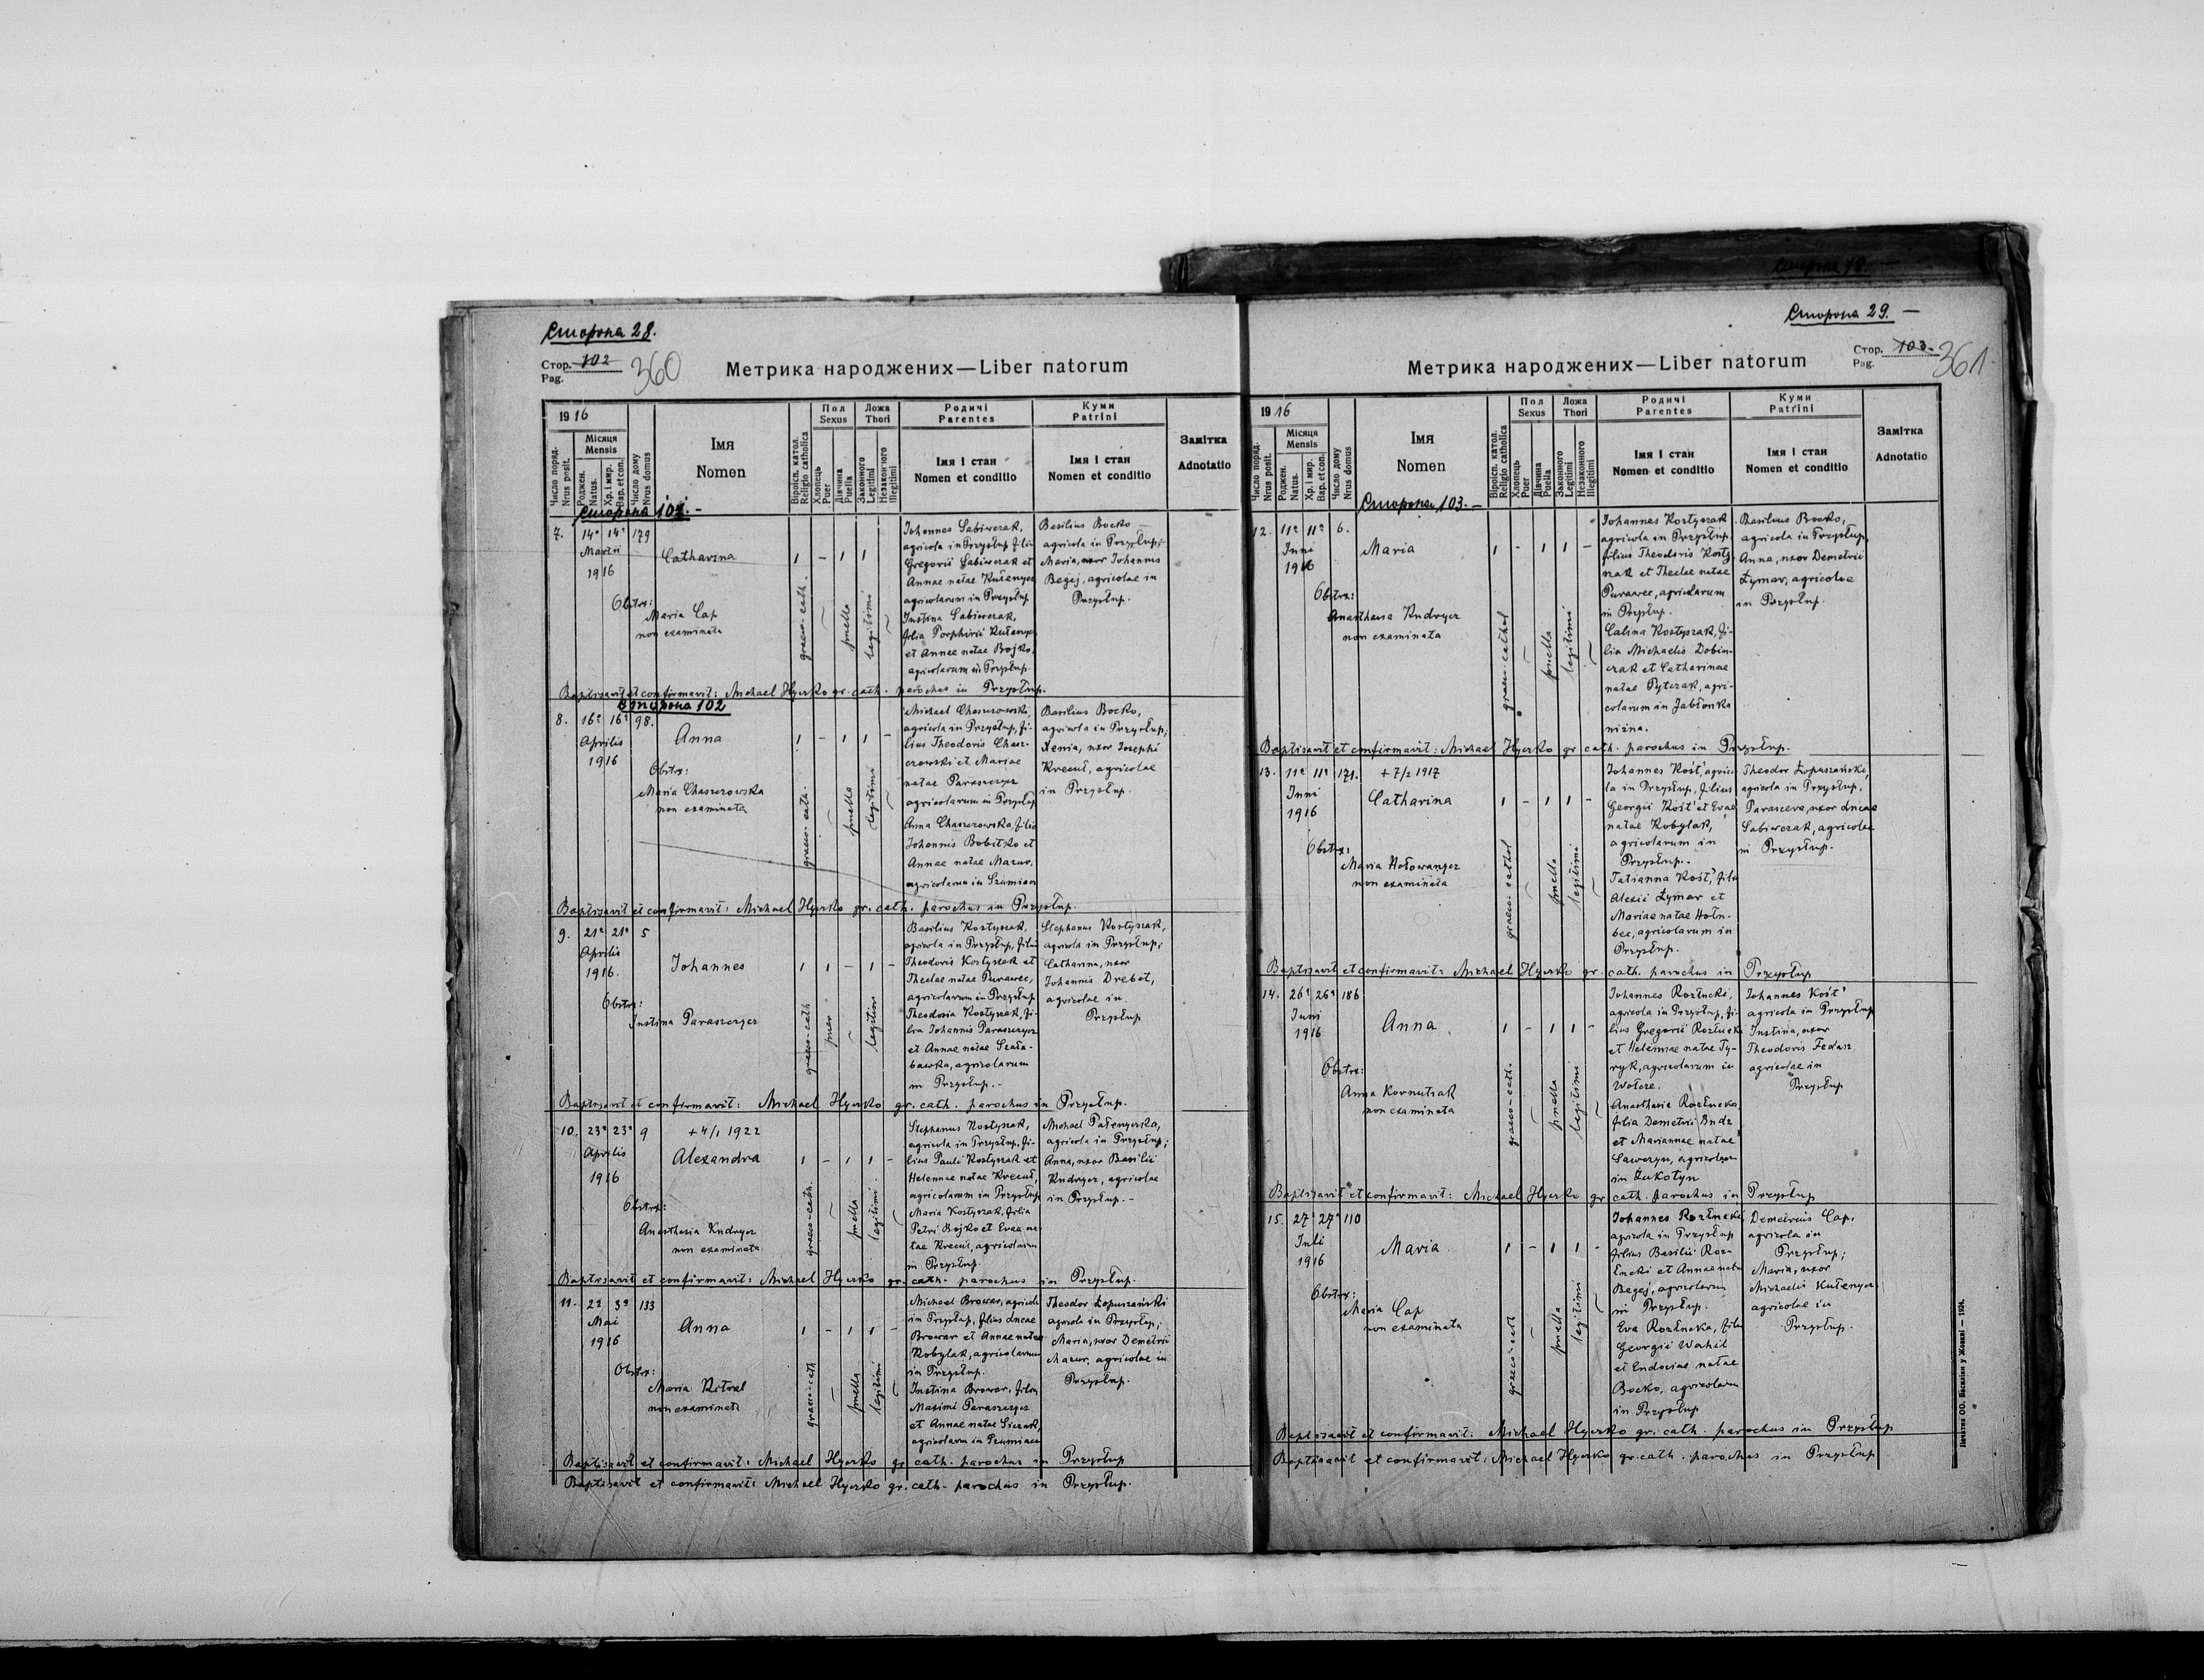 Сторона 28.
Стор. 102
Pag.
360
Метрика народжених—Liber natorum
1916
Число поряд.
Nrus posit.
Місяця
Mensis
Роджен.
Natus.
Хр. і мир.
Bap. et con.
Число дому
Nrus domus
Імя
Nomen
Віроісп. катол.
Religio catholica
Пол
Sexus
Хлопець
Puer
Дівчина
Puella
Ложа
Thori
Законного
Legitimi
Незаконного
Illegitimi
Родичі
Parentes
Імя і стан
Nomen et conditio
Куми
Patrini
Імя і стан
Nomen et conditio
Замітка
Adnotatio
Сторона 101.-
7. 14ª 14ª 179
Martii
1916
Catharina
Obstrx:
Maria Cap
non examinata
graeco-cath.
puella
legitimi
Johannes Sabiwczak,
agricola in Przysłup, filius
Gregorii Sabiwczak et
Annae natae Kułenycz
agricolarum in Przysłup
Justina Sabiwczak,
filia Porphirii Kułenycz
et Annae natae Bojko,
agricolarum in Przysłup.
Basilius Bocko
agricola in Przysłup;
Maria, uxor Johannis
Begej, agricolae in
Przysłup.
Baptisavit et confirmavit: Michael Hyczko gr. cath. parochus in Przysłup.
Сторона 102
8. 16ª 16ª 98.
Aprilis
1916
Anna
Obstrx:
Maria Chaszczowska
non examinata
graeco-cath.
puella
legitimi
Michael Chaszczowski,
agricola in Przysłup, fi-
lius Theodoris Chasz-
czowski et Mariae
natae Paraszczycz
agricolarum in Przysłup
Anna Chaszczowska, filia
Johannis Bobitko et
Annae natae Mazur,
agricolarum in Szumiacz
Basilius Bocko,
agricola in Przysłup;
Xenia, uxor Josephi
Krecuł, agricolae
in Przysłup.
Baptisavit et confirmavit: Michael Hyczko gr. cath. parochus in Przysłup.
9. 21ª 21ª 5
Aprilis
1916.
Johannes
Obstrx:
Justina Paraszczycz
graeco-cath
puer
legitimi
Basilius Kostyszak,
agricola in Przysłup, filius
Theodoris Kostyszak et
Theclae natae Purawec,
agricolarum in Przysłup
Theodosia Kostyszak, fi-
lia Johannis Paraszczycz
et Annae natae Szała-
bawka, agricolarum
in Przysłup.-
Stephanus Kostyszak,
agricola in Przysłup;
Catharina, uxor
Johannis Drebot,
agricolae in
Przysłup
Baptisavit et confirmavit: Michael Hyczko gr. cath. parochus in Przysłup.
10. 23ª 23ª 9
+4/1 1922
Aprilis
1916
Alexandra
Obstrx:
Anasthasia Kudrycz
non examinata
graeco-cath.
puella
legitimi
Stephanus Kostyszak,
agricola in Przysłup, fi-
lius Pauli Kostyszak et
Helennae natae Krecuł,
agricolarum in Przysłup
Maria Kostyszak, filia
Petri Bojko et Evae na-
tae Krecuł, agricolarum
in Przysłup.
Michael Pałenyczka,
agricola in Przysłup;
Anna, uxor Basilii
Kudrycz, agricolae
in Przysłup.-
Baptisavit et confirmavit: Michael Hyczko gr. cath. parochus in Przysłup.
11. 2ª 3ª 133
Mai
1916
Anna
Obstrx:
Maria Kitral
non examinata
graeco-cath
puella
legitimi
Michael Browar, agricola
in Przysłup, filius Lucae
Browar et Annae natae
Kobylak, agricolarum
in Przysłup.
Justina Browar, filia
Maximi Paraszczycz
et Annae natae Siczak,
agricolarum in Szumiacz
Theodor Łopuszański
agricola in Przysłup;
Maria, uxor Demetrii
Mazur, agricolae in
Przysłup.
Baptisavit et confirmavit: Michael Hyczko gr cath. parochus in Przysłup
Baptisavit et confirmavit: Michael Hyczko gr. cath- parochus in Przysłup.
Сторона 29. —
Стор. 103.
Pag.
361
Метрика народжених—Liber natorum
1916
Число поряд.
Nrus posit.
Місяця
Mensis
Роджен.
Natus.
Хр. і мир.
Bap. et con.
Число дому
Nrus domus
Імя
Nomen
Віроісп. катол.
Religio catholica
Пол
Sexus
Хлопець
Puer
Дівчина
Puella
Ложа
Thori
Законного
Legitimi
Незаконного
Illegitimi
Родичі
Parentes
Імя і стан
Nomen et conditio
Куми
Patrini
Імя і стан
Nomen et conditio
Замітка
Adnotatio
Сторона 103.-
12. 11ª 11ª 6.
Juni
1916
Maria
Obstrx:
Anasthasia Kudrycz
non examinata
graeco-cathol
puella
legitimi
Johannes Kostyszak
agricola in Przysłup
filius Theodoris Kosty
szak et Theclae natae
Purawec, agricolarum
in Przysłup.
Calina Kostyszak, fi-
lia Michaelis Dobin-
czak et Catharinae
natae Pytczak, agri-
colarum in Jabłonka
niżna.
Basilius Bocko,
agricola in Przysłup,
Anna, uxor Demetrii
Łymar, agricolae
in Przysłup.
Baptisavit et confirmavit: Michael Hyczko gr cath. parochus in Przysłup.
13. 11ª 11ª 171.
+7/2 1917
Juni
1916
Catharina
Obstrx:
Maria Hołowangez
non examinata
graeco-cathol
puella
legitimi
Johannes Kość, agrico-
la in Przysłup, filius
Georgii Kość et Evae
natae Kobylak,
agricolarum in
Przysłup.
Tatianna Kość, filia
Alexii Łymar et
Mariae natae Hołu-
bec, agricolarum in
Przysłup.
Theodor Łopuszański,
agricola in Przysłup,
Parasceva, uxor Lucae
Sabiwczak, agricolae
in Przysłup.
Baptisavit et confirmavit: Michael Hyczko gr. cath. parochus in Przysłup
14. 26ª 26ª 186
Juni
1916
Anna
Obstrx:
Anna Kornutiak
non examinata
graeco-cath.
puella
legitimi
Johannes Rozłucki,
agricola in Przysłup, fi-
lius Gregorii Rozłucki
et Helennae natae Ty-
ryk, agricolarum in
Wołcze.
Anasthasia Rozłucka,
filia Demetrii Budz
et Mariannae natae
Sawczyn, agricolarum
in Łukotyn
Johannes Kość
agricola in Przysłup
Justina, uxor
Theodoris Fedasz
agricolae in
Przysłup
Baptisavit et confirmavit: Michael Hyczko gr cath. parochus in Przysłup
15. 27ª 27ª 110
Juli
1916
Maria
Obstrx:
Maria Cap
non examinata
graeco-cath
puella
legitimi
Johannes Rozłucki,
agricola in Przysłup
filius Basilii Roz-
łucki et Annae natae
Begej, agricolarum
in Przysłup.
Eva Rozłucka, filia
Georgii Wahil
et Eudociae natae
Bocko, agricolarum
in Przysłup
Demetrius Cap,
agricola in
Przysłup;
Maria, uxor
Michaelis Kułenycz
agricolae in
Przysłup.
Baptisavit et confirmavit: Michael Hyczko gr. cath. parochus in Przysłup
Baptisavit et confirmavit: Michael Hyczko gr.cath. parochus in Przysłup
Печатня ОО. Василіян у Жовкві — 1924.